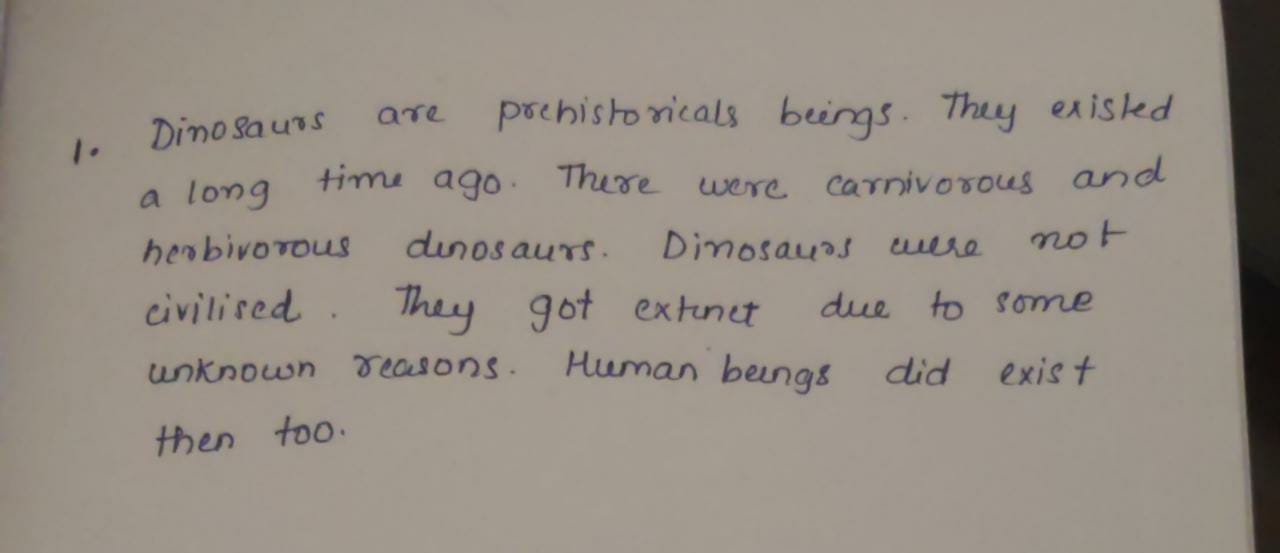 1. Dinosaurs are prehistoricals beings. They existed
a long time ago. There were carnivorous and
herbivorous dinosaurs. Dinosaurs were not
civilised. They got extinct due to some
unknown reasons. Human beings did exist
then too.